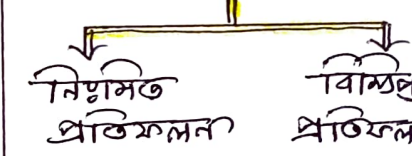 নিয়মিত
প্রতিফলন
বিক্ষিপ্ত
প্রতিফল